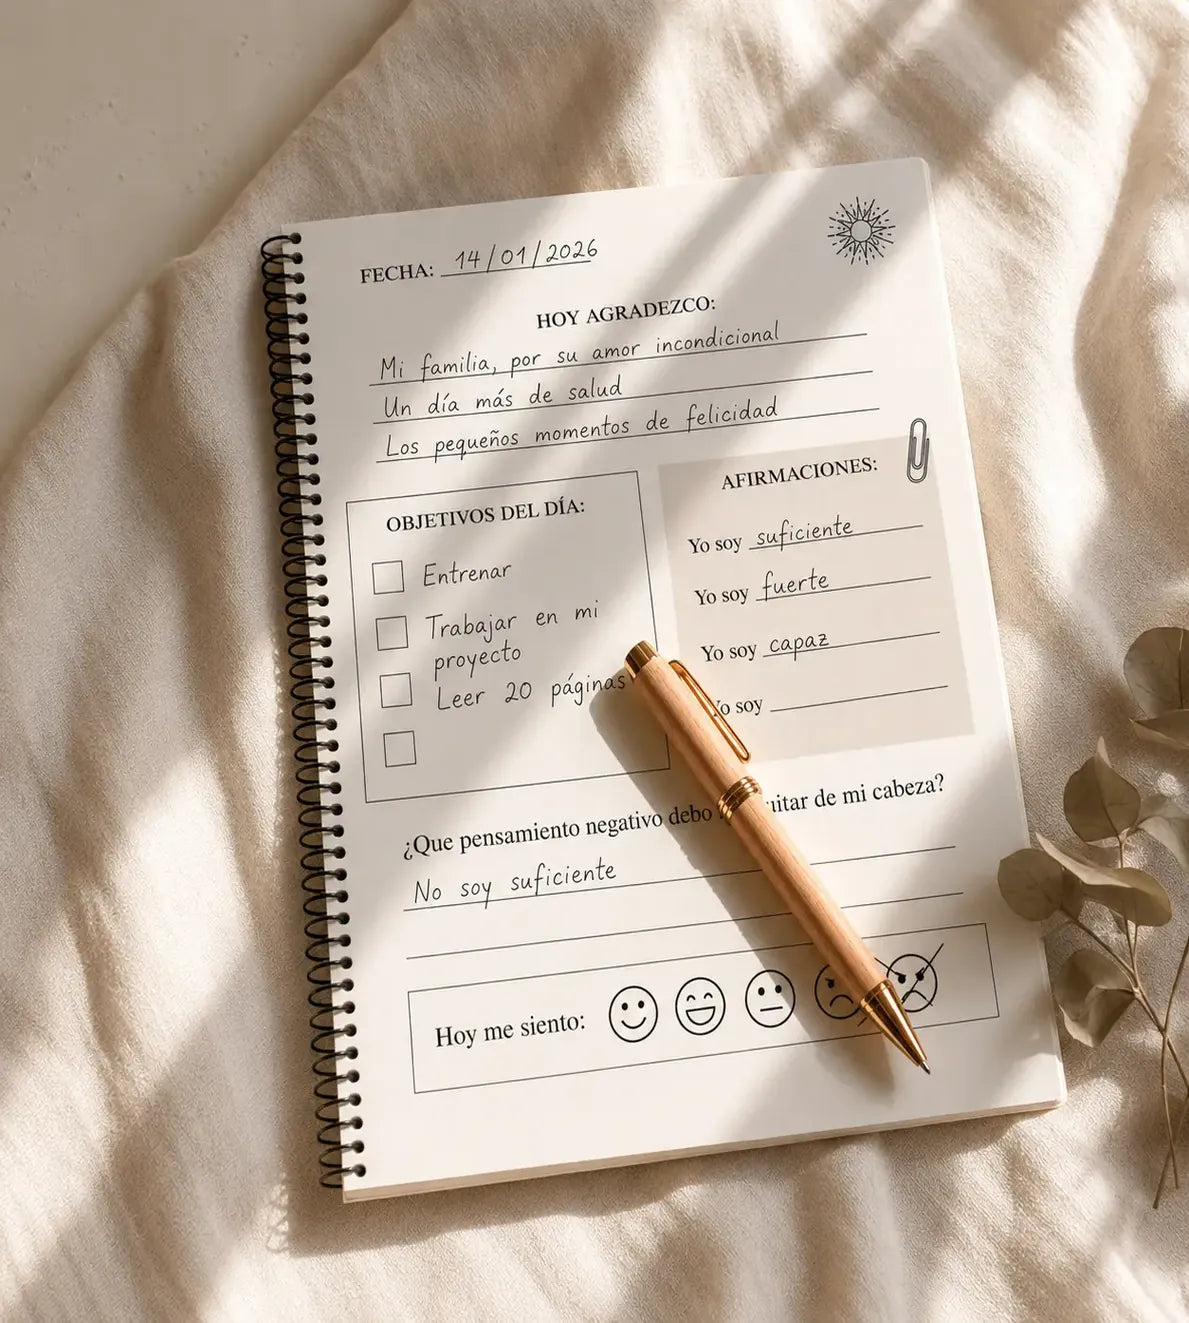 FECHA: 14/01/2026
HOY AGRADEZCO:
Mi familia, por su amor incondicional
Un día más de salud
Los pequeños momentos de felicidad
OBJETIVOS DEL DÍA:
Entrenar
Trabajar en mi
proyecto
Leer 20 páginas
AFIRMACIONES:
Yo soy suficiente
Yo soy fuerte
Yo soy capaz
Yo soy
¿Que pensamiento negativo debo de mi cabeza?
No soy suficiente
Hoy me siento: